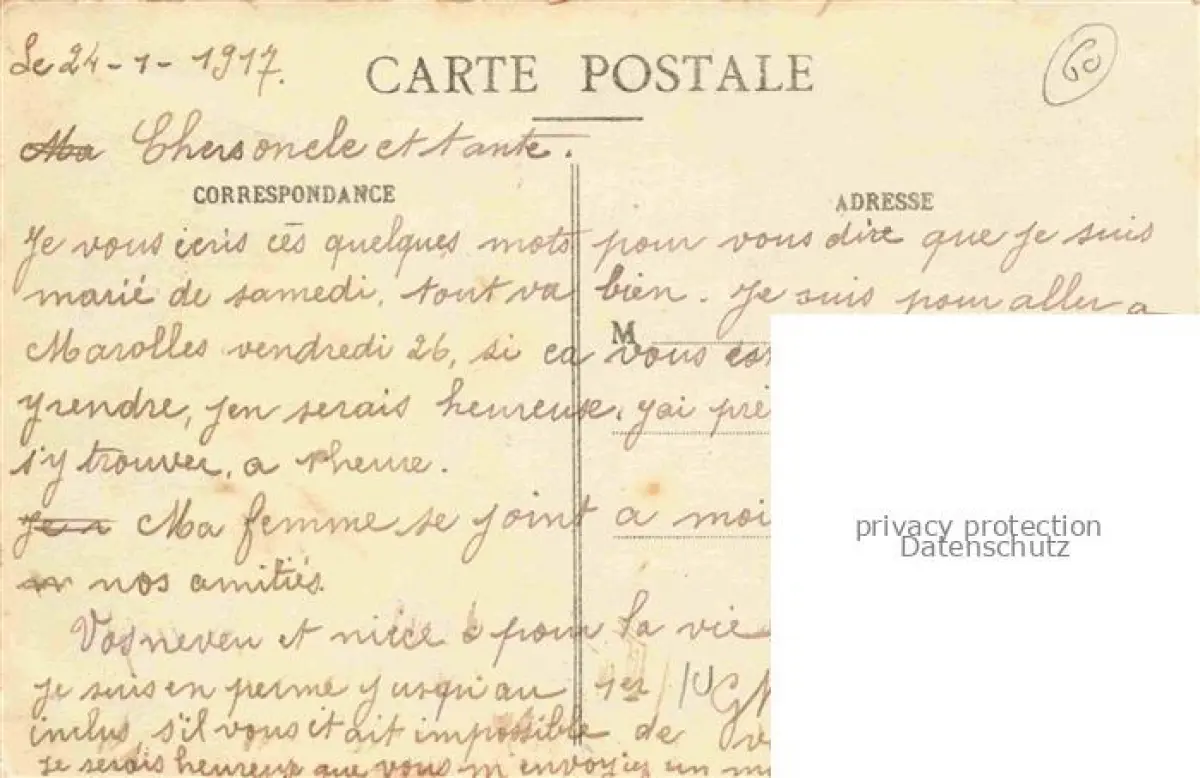 Le 24-1-1917.
CARTE POSTALE
60
Ma Chers oncle et tante.
CORRESPONDANCE
ADRESSE
Je vous écris ces quelques mots pour vous dire que je suis
marié de samedi, tout va bien. Je suis pour aller a
M
Marolles vendredi 26, si ca vous
prendre, jen serais heureuse. jai
s'y trouver, a 1 heure.
Ma femme se joint a moi
nos amitiés.
Vos neveu et niéce pour la vie
je suis en perme jusqu'au 1er
inclus, s'il vous était impossible de
je serais heureux que vous m'envoyiez un
privacy protection
Datenschutz